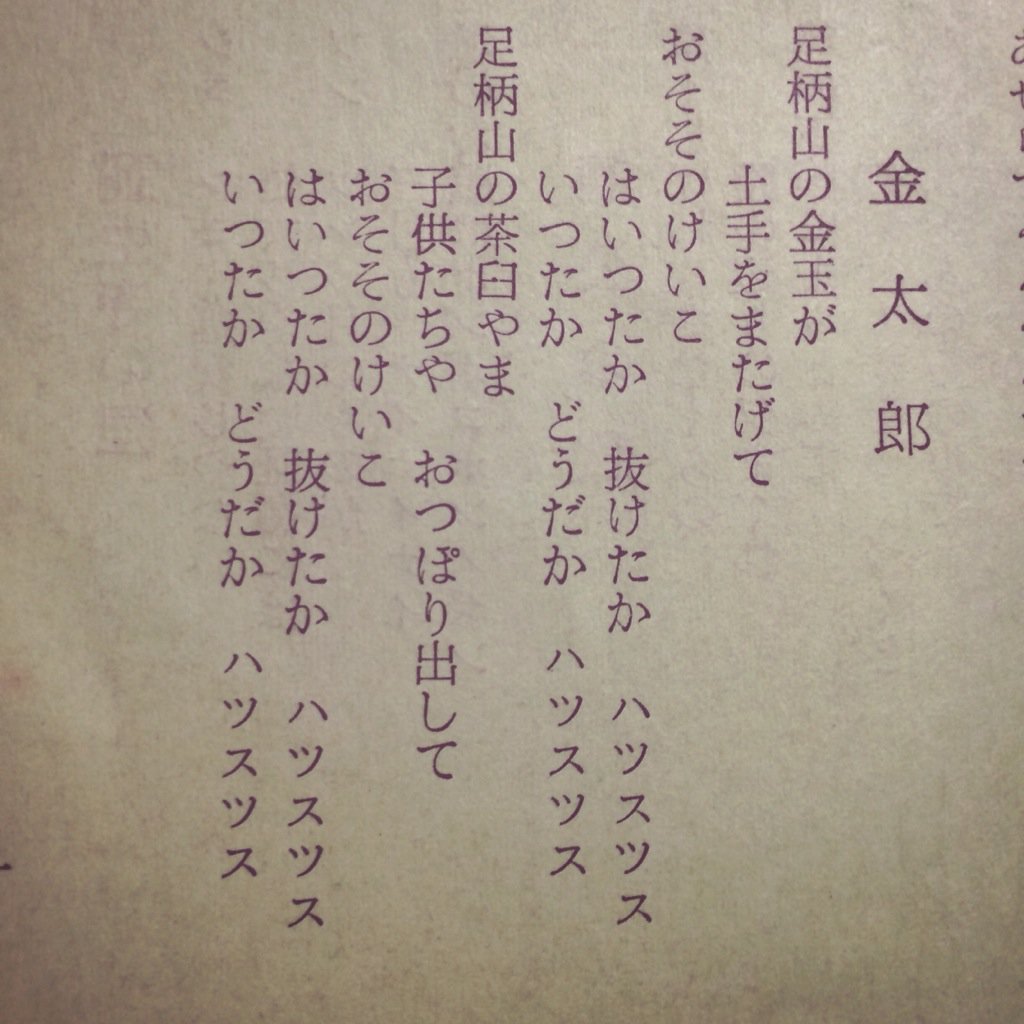 金太郎
足柄山の金玉が
土手をまたげて
おそそのけいこ
はいつたか　抜けたか　ハツスツス
いつたか　どうだか　ハツスツス
足柄山の茶臼やま
子供たちや　おつぽり出して
おそそのけいこ
はいつたか　抜けたか　ハツスツス
いつたか　どうだか　ハツスツス